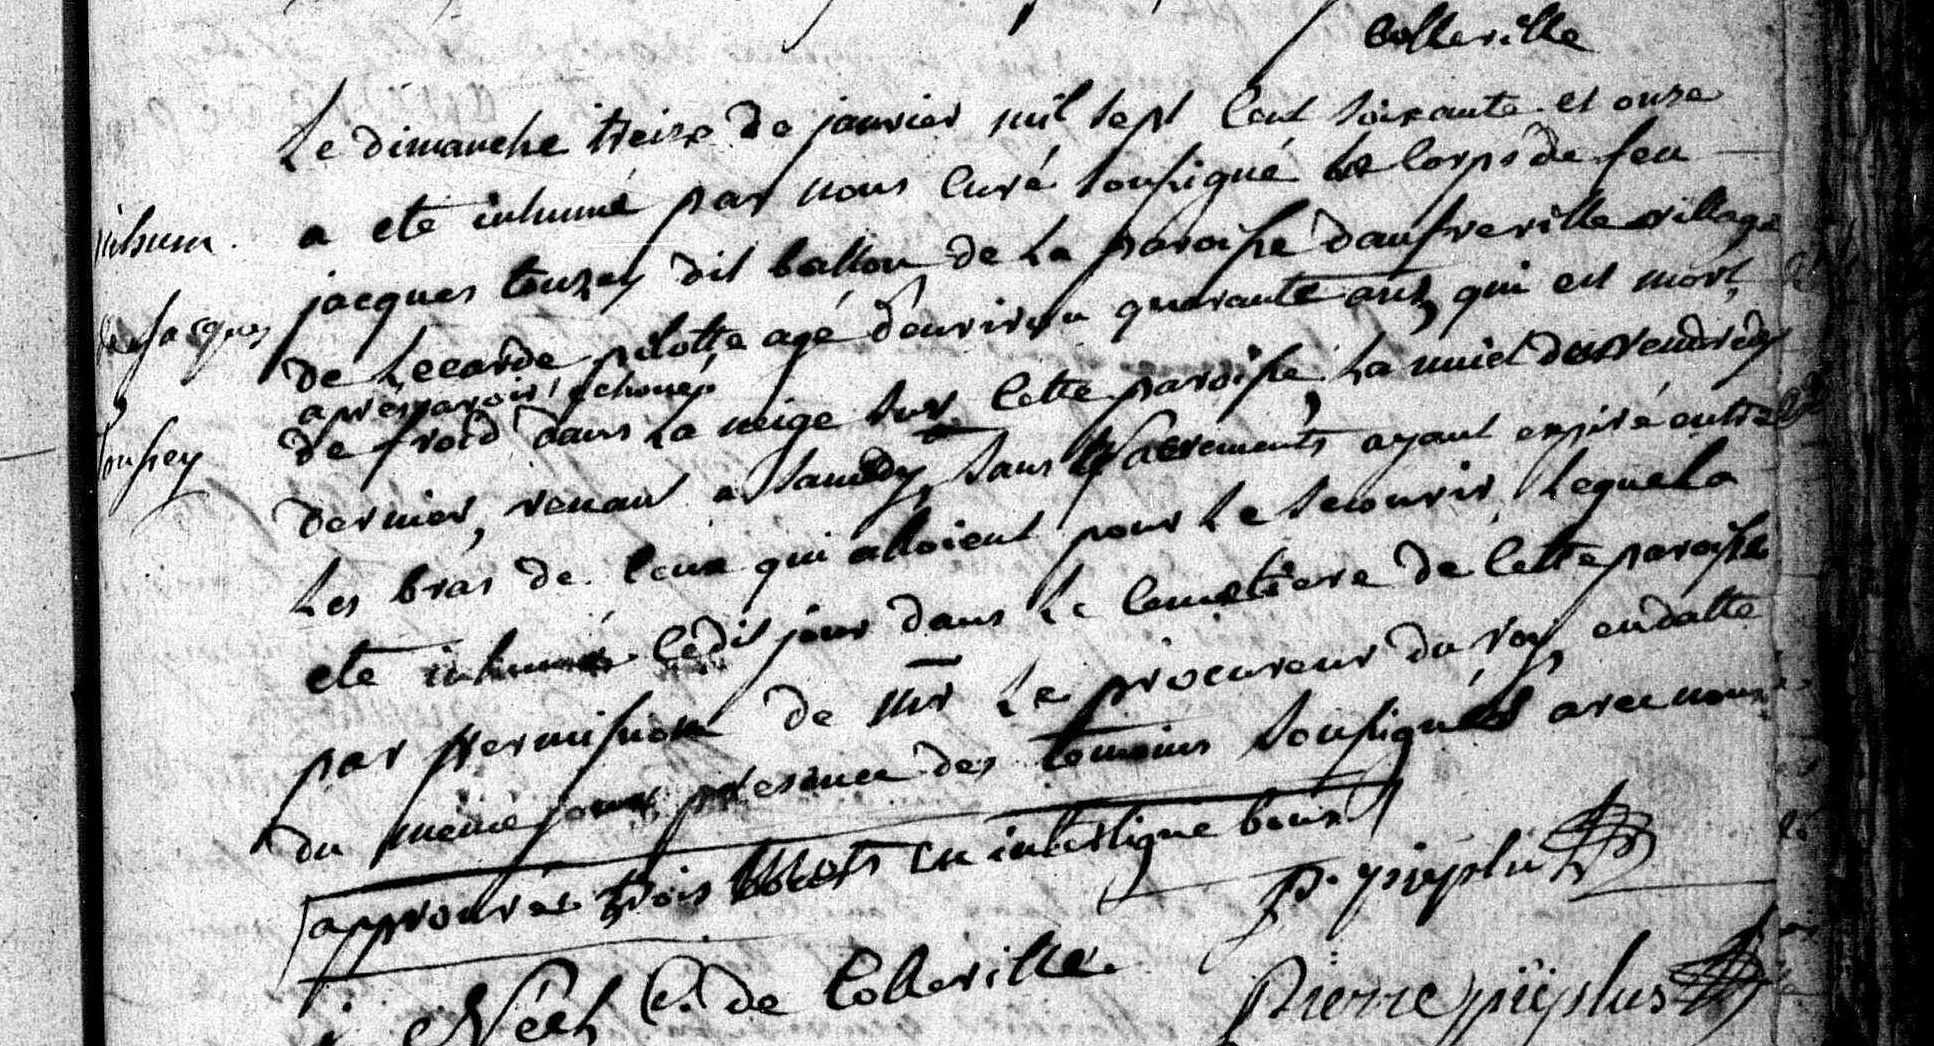 Colleville
Le dimanche treize de janvier mil sept Cent soixante et onze
a eté inhumé par nous Curé soussigné le Corps de feu
jacques touzey dit ballon de La paroisse d'anfreville village
de Lecarde pilotte agé d'environ quarante ans qui est mort
apres avoir échoué
de froid dans La neige sur Cette paroisse La nuict du vendredy
dernier, venant a samedy, sans sacrements ayant expiré entre
Les bras de Ceux qui alloient pour Le secourir, Lequel a
eté inhumé Cedit jour dans Le Cemetiere de Cette paroisse
par permission de Mr Le procureur du roy, en datte
du méme jour presence des temoins soussignés avec nous
approuvés trois mots en interligne bons
inhum.
de jacques
tousey
P. pieplu
Néel C. de Colleville.
Pierre pieplus